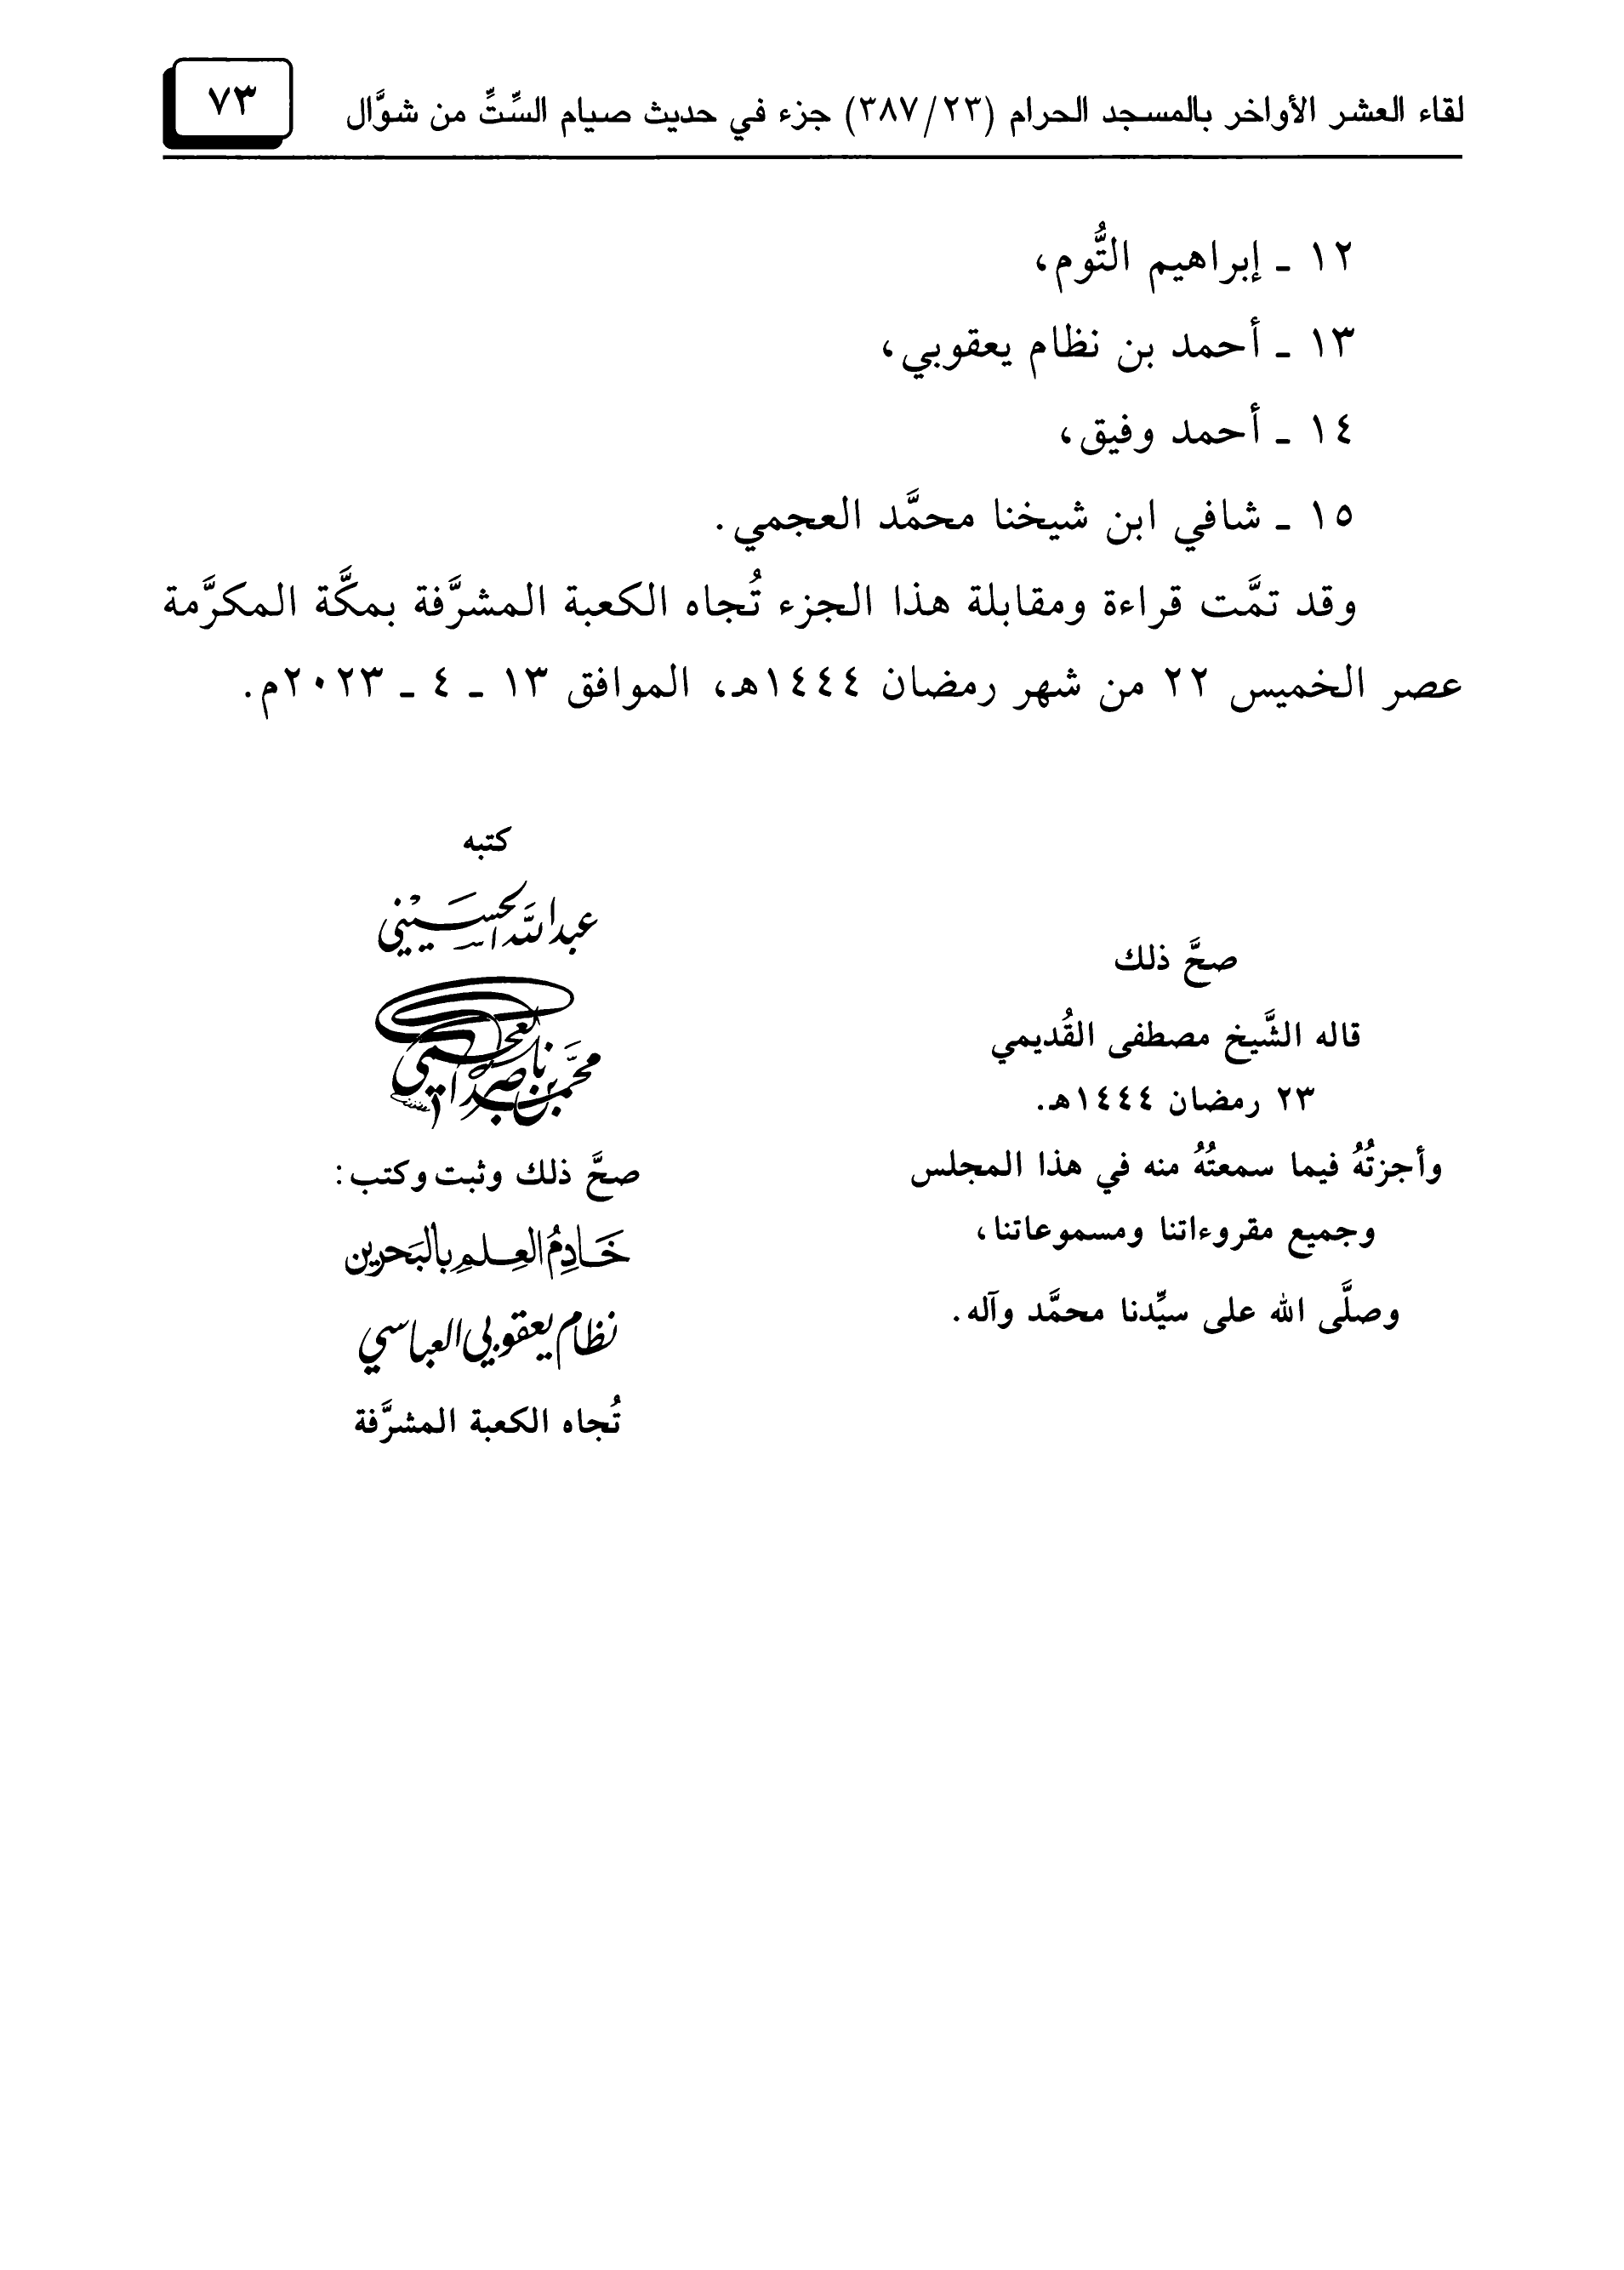 لقاء العشر الأواخر بالمسجد الحرام (٣٨٧/٢٣) جزء في حديث صيام السِّتِّ من شوَّال
٧٣
١٢ ـ إبراهيم التُّوم،
١٣ ـ أحمد بن نظام يعقوبي،
١٤ ـ أحمد وفيق،
١٥ ـ شافي ابن شيخنا محمَّد العجمي.
وقد تمَّت قراءة ومقابلة هذا الجزء تُجاه الكعبة المشرَّفة بمكَّة المكرَّمة
عصر الخميس ٢٢ من شهر رمضان ١٤٤٤هـ، الموافق ١٣ ـ ٤ ـ ٢٠٢٣م.
صحَّ ذلك
قاله الشَّيخ مصطفى القُديمي
٢٣ رمضان ١٤٤٤هـ.
وأجزتُهُ فيما سمعتُهُ منه في هذا المجلس
وجميع مقروءاتنا ومسموعاتنا،
وصلَّى الله على سيِّدنا محمَّد وآله.
كتبه
عبدالله الحسيني
محمد بن ناصر العجمي
صحَّ ذلك وثبت وكتب:
خَادِمُ العِلم بالبَحرين
نظام يعقوبي العباسي
تُجاه الكعبة المشرَّفة